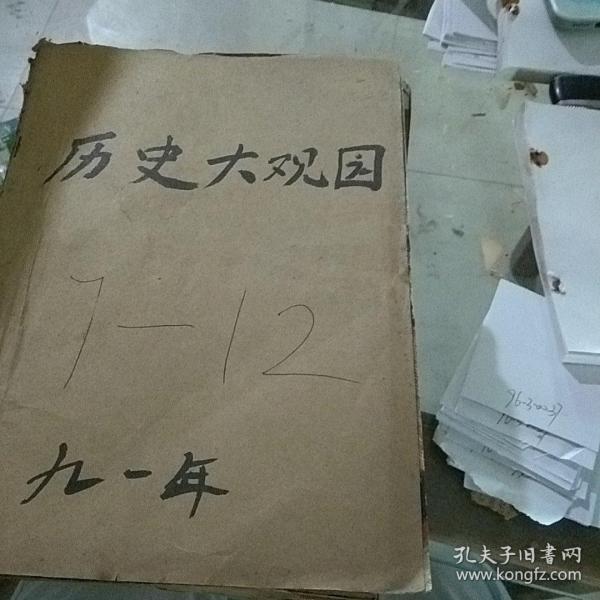 历史大观园
7—12
九一年
96-3-0237
孔夫子旧書网
www.kongfz.com